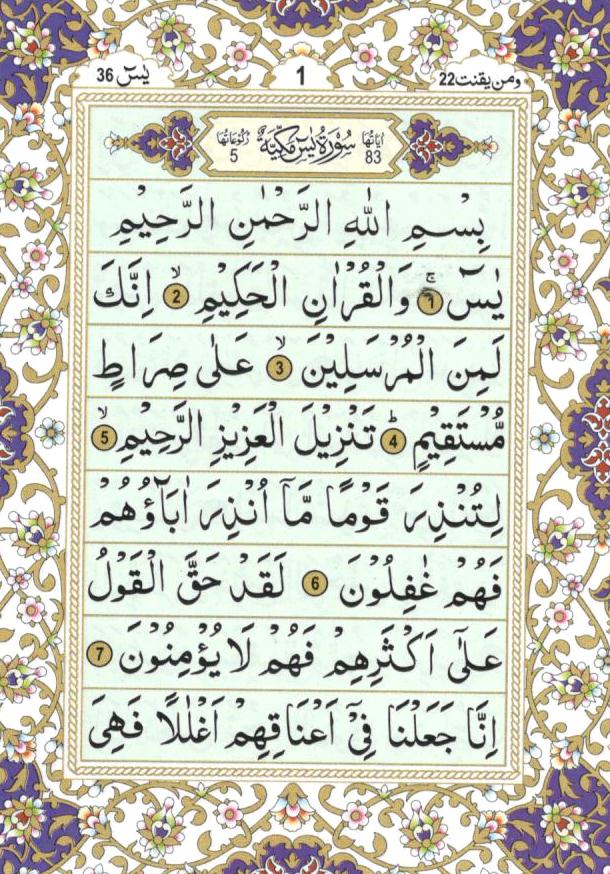 ومن يقنت 22 1 يٰسٓ 36
اٰيَاتُهَا 83 سُوْرَةُ يٰسٓ مَكِّيَّةٌ رُكُوْعَاتُهَا 5
بِسْمِ اللّٰهِ الرَّحْمٰنِ الرَّحِيْمِ
يٰسٓ ۚ ١ وَالْقُرْاٰنِ الْحَكِيْمِ ۙ 2 اِنَّكَ
لَمِنَ الْمُرْسَلِيْنَ ۙ 3 عَلٰى صِرَاطٍ
مُّسْتَقِيْمٍ ؕ 4 تَنْزِيْلَ الْعَزِيْزِ الرَّحِيْمِ ۙ 5
لِتُنْذِرَ قَوْمًا مَّاۤ اُنْذِرَ اٰبَآؤُهُمْ
فَهُمْ غٰفِلُوْنَ 6 لَقَدْ حَقَّ الْقَوْلُ
عَلٰۤى اَكْثَرِهِمْ فَهُمْ لَا يُؤْمِنُوْنَ 7
اِنَّا جَعَلْنَا فِيْۤ اَعْنَاقِهِمْ اَغْلٰلًا فَهِىَ